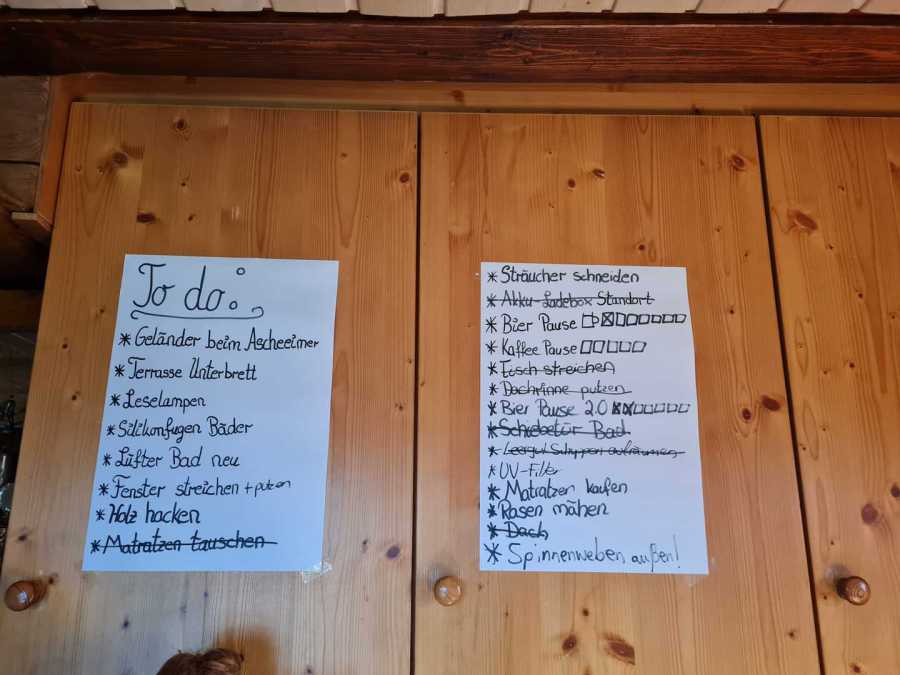 To do:
* Geländer beim Ascheeimer
* Terrasse Unterbrett
* Leselampen
* Silikonfugen Bäder
* Lüfter Bad neu
* Fenster streichen + putzen
* Holz hacken
* Matratzen tauschen
* Sträucher schneiden
* Akku-Ladebox Standort
* Bier Pause
* Kaffee Pause
* Tisch streichen
* Dachrinne putzen
* Bier Pause 2.0
* Schiebetür Bad
* Leergut Schuppen aufräumen
* UV-Filter
* Matratzen kaufen
* Rasen mähen
* Dach
* Spinnenweben außen!